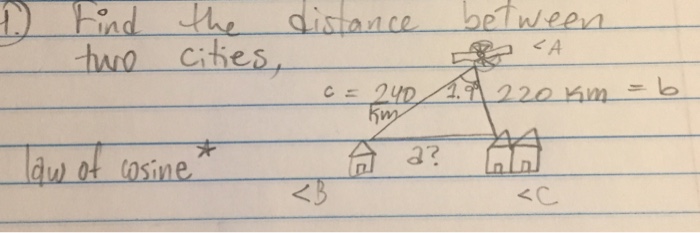 1.) Find the distance between
two cities,
<A
c = 240 km 1.9° 220 km = b
law of cosine* a?
<B <C